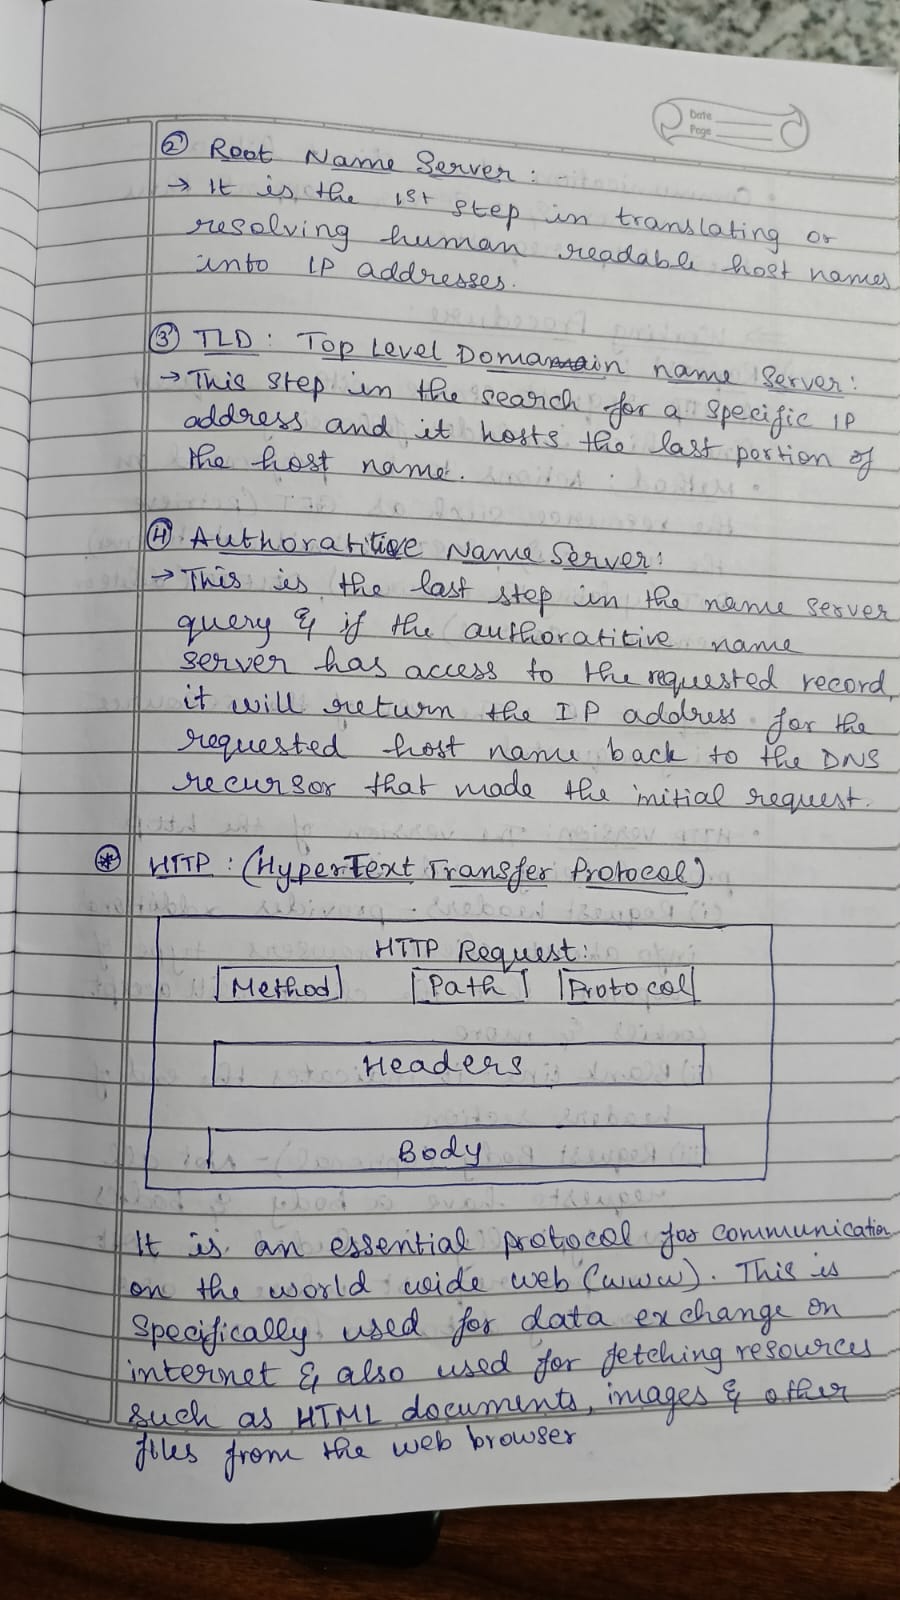 Date
Page
② Root Name Server : -
→ It is the 1st step in translating or
resolving human readable host names
into IP addresses.
③ TLD : Top Level Domain name Server :
→ This step in the search for a specific IP
address and it hosts the last portion of
the host name.
④ Authoratitive Name Server :
→ This is the last step in the name server
query & if the authoratitive name
server has access to the requested record,
it will return the IP address for the
requested host name back to the DNS
recursor that made the initial request.
⊛ HTTP : (HyperText Transfer Protocol)
HTTP Request :
Method Path Protocol
Headers
Body
It is an essential protocol for communication
on the world wide web (www). This is
specifically used for data exchange on
internet & also used for fetching resources
such as HTML documents, images & other
files from the web browser